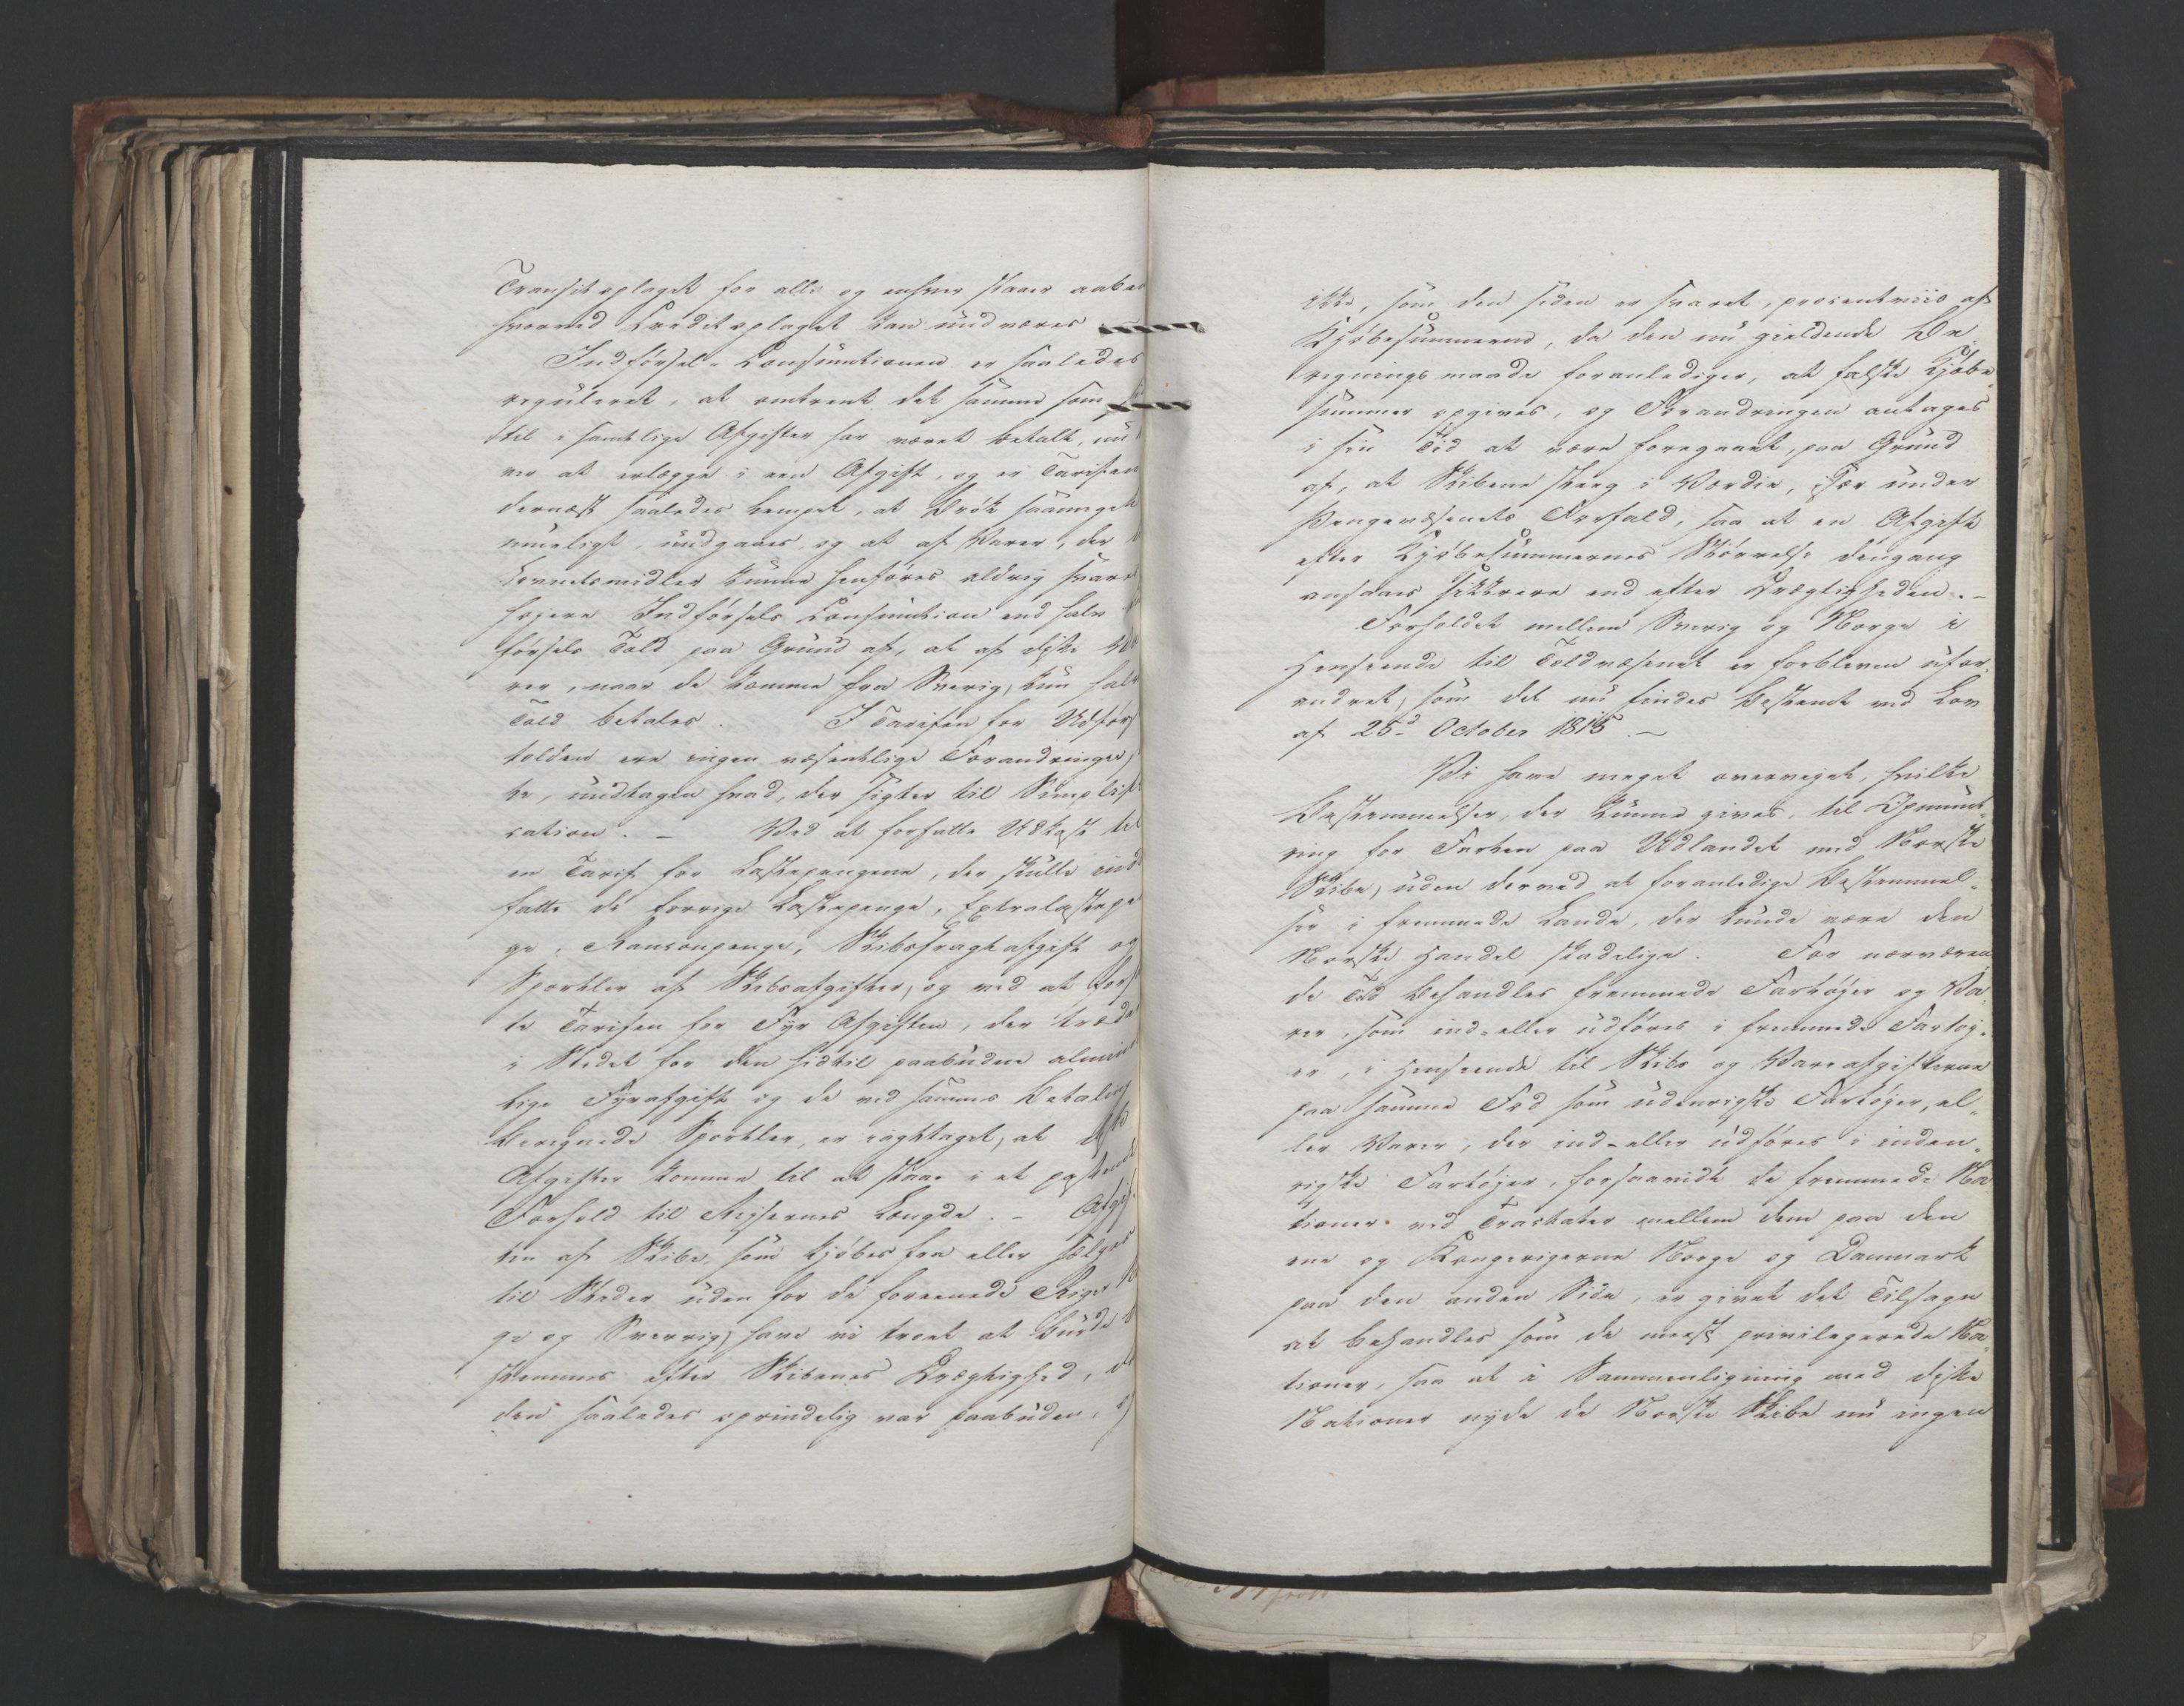 Transitoplaget for alle og enhver staaer aaben
hvorved Creditoplaget kan undværes
Indførsel-Consumtionen er saaledes
reguleret, at omtrent det samme som
til i samtlige Afgifter har været betalt, nu
ver at erlægge i een Afgift, og er Tariffen
dernæst saaledes lempet, at Brøk saameget
mueligt, undgaaes, og at af Varer, der
Levnetsmidler kunne henføres aldrig svares
høiere Indførsels Consumtion end halv
førsels Told paa Grund af, at af disse Va
rer, naar de komme fra Sverig, kun halv
Told betales. I Tariffen for Udførs
tolden ere ingen væsentlige Forandringer,
te, undtagen hvad, der sigter til Simplifi
cation. – Ved at forfatte Udkast til
en Tarif for Lastepengene, der skulle ind
fatte de forrige Lastepenge, Extralastepe
ge, Ransonpenge, Skibsfragtafgift og
Sportler af Skibsafgifter, og ved at forfat
te Tariffen for Fyr Afgiften, der træde
i Stedet for den hidtil paabudne almin
lige Fyrafgift og de ved sammes Betaling
beregnede Sportler, er iagttaget, at disse
Afgifter komme til at staae i et passende
Forhold til Reisernes Længde. – Afgif
ten af Skibe, som kjøbes fra eller sælges
til Steder uden for de foreenede Riger
ge og Sverrig, have vi troet at burde
stemmes efter Skibenes Drægtighed,
den saaledes oprindelig var paabuden,
ikke, som den siden er svaret, procentviis af
Kjøbesummerne, da den nu gieldende Be
regningsmaade foranlediger, at falske Kjøbe
summer opgives, og Forandringen antages
i sin Tid at være foregaaet, paa Grund
af, at Skibene steeg i Værdie, især under
Pengevæsenets Forfald, saa at en Afgift
efter Kjøbesummernes Størrelse dengang
ansaaes sikkrere end efter Drægtigheden. –
Forholdet mellem Sverig og Norge i
Henseende til Toldvæsenet er forbleven ufor-
andret, som det nu findes bestemt ved Lov
af 25d October 1815. –
Vi have meget overveiet, hvilke
Bestemmelser, der kunne gives, til Opmunt-
ring for Farten paa Udlandet med Norske
Skibe, uden derved at foranledige Bestemmel-
ser i fremmede Lande, der kunde være den
Norske Handel skadelige. For nærværen
de Tid behandles fremmede Fartøjer og Va-
rer, som ind- eller udføres i fremmede Fartøj-
er, i Henseende til Skibs og Vareafgifterne
paa samme Fod som indenrigske Fartøjer, el-
ler Varer, der ind- eller udføres i inden-
rigske Fartøjer, forsaavidt de fremmede Na
tioner ved Tractater mellem dem paa den
ene og Kongerigerne Norge og Danmark
paa den anden Side, er givet det Tilsagn
at behandles som de meest privilegerede Na-
tioner, saa at i Sammenligning med disse
Nationer nyde de Norske Skibe nu ingen